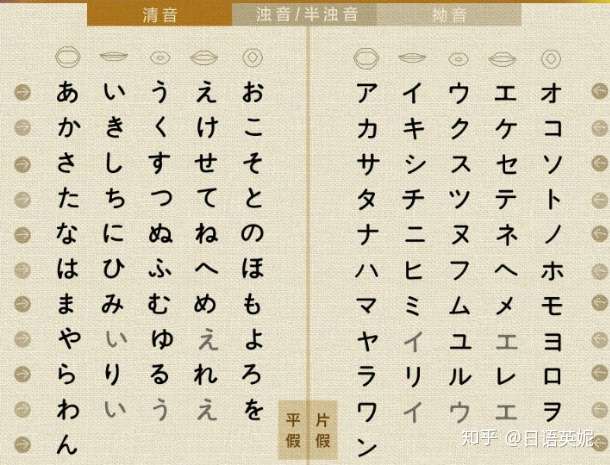 清音 浊音/半浊音 拗音
あ い う え お ア イ ウ エ オ
か き く け こ カ キ ク ケ コ
さ し す せ そ サ シ ス セ ソ
た ち つ て と タ チ ツ テ ト
な に ぬ ね の ナ ニ ヌ ネ ノ
は ひ ふ へ ほ ハ ヒ フ ヘ ホ
ま み む め も マ ミ ム メ モ
や い ゆ え よ ヤ イ ユ エ ヨ
ら り る れ ろ ラ リ ル レ ロ
わ い う え を ワ イ ウ エ ヲ
ん ン
平假 片假
知乎 @日语英妮